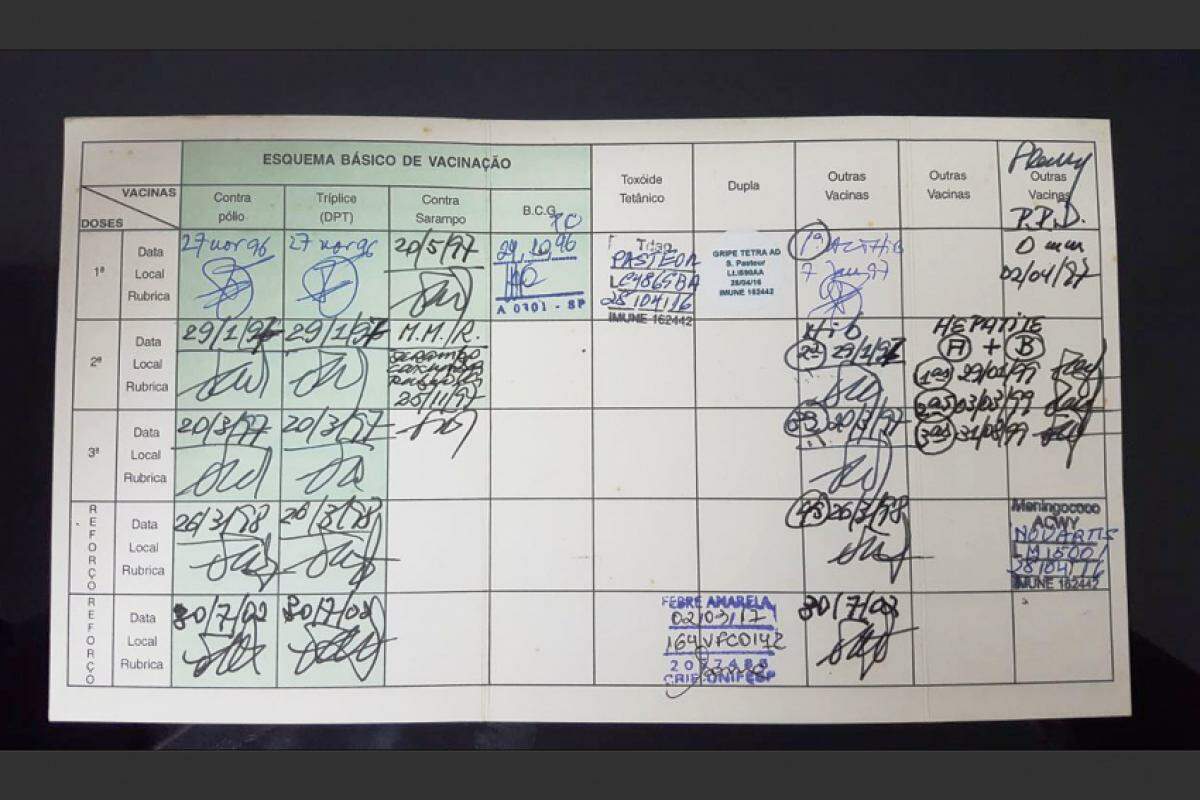 ESQUEMA BÁSICO DE VACINAÇÃO
VACINAS
DOSES
Contra
pólio
Tríplice
(DPT)
Contra
Sarampo
B.C.G.
Toxóide
Tetânico
Dupla
Outras
Vacinas
Outras
Vacinas
Outras
Vacinas
P.P.D.
1ª
Data
Local
Rubrica
27 nov 96
27 nov 96
20/5/97
29.10.96
A 0701 - SP
PASTEUR
28/04/16
IMUNE 162442
GRIPE TETRA AD
S. Pasteur
LLI590AA
28/04/16
IMUNE 162442
1ª ACTHIB
7 Jan 97
0 mm
02/04/97
2ª
Data
Local
Rubrica
29/1/97
29/1/97
M.M.R.
Sarampo
Caxumba
Rubéola
25/11/97
Hib
2ª 29/1/97
HEPATITE
A + B
1as 29/01/99
2as 03/03/99
3as 31/08/99
3ª
Data
Local
Rubrica
20/3/97
20/3/97
20/3/97
REFORÇO
Data
Local
Rubrica
26/3/98
26/3/98
26/3/98
Meningococo
ACWY
NOVARTIS
28/04/16
IMUNE 162442
REFORÇO
Data
Local
Rubrica
30/7/02
30/7/02
FEBRE AMARELA
02/03/17
164VFC014Z
CRIE UNIFESP
30/7/02